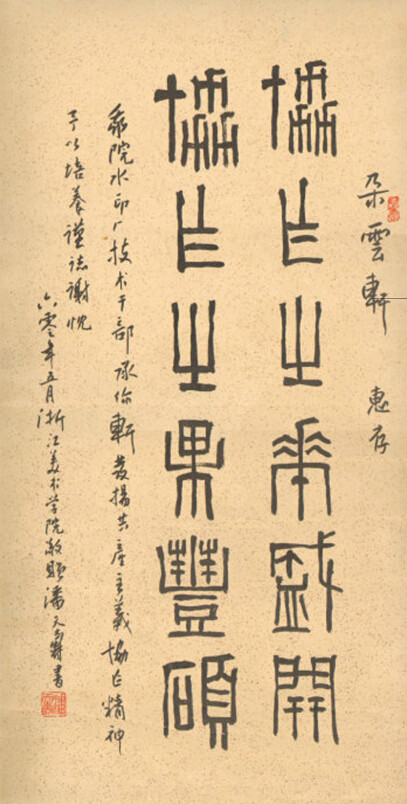 朵雲軒 惠存
協作之華盛開
協作之果豐碩
我院水印厂技术干部承你軒發揚共產主義協作精神
予以培養謹誌謝忱
六零年五月浙江美术学院敬贈潘天壽書